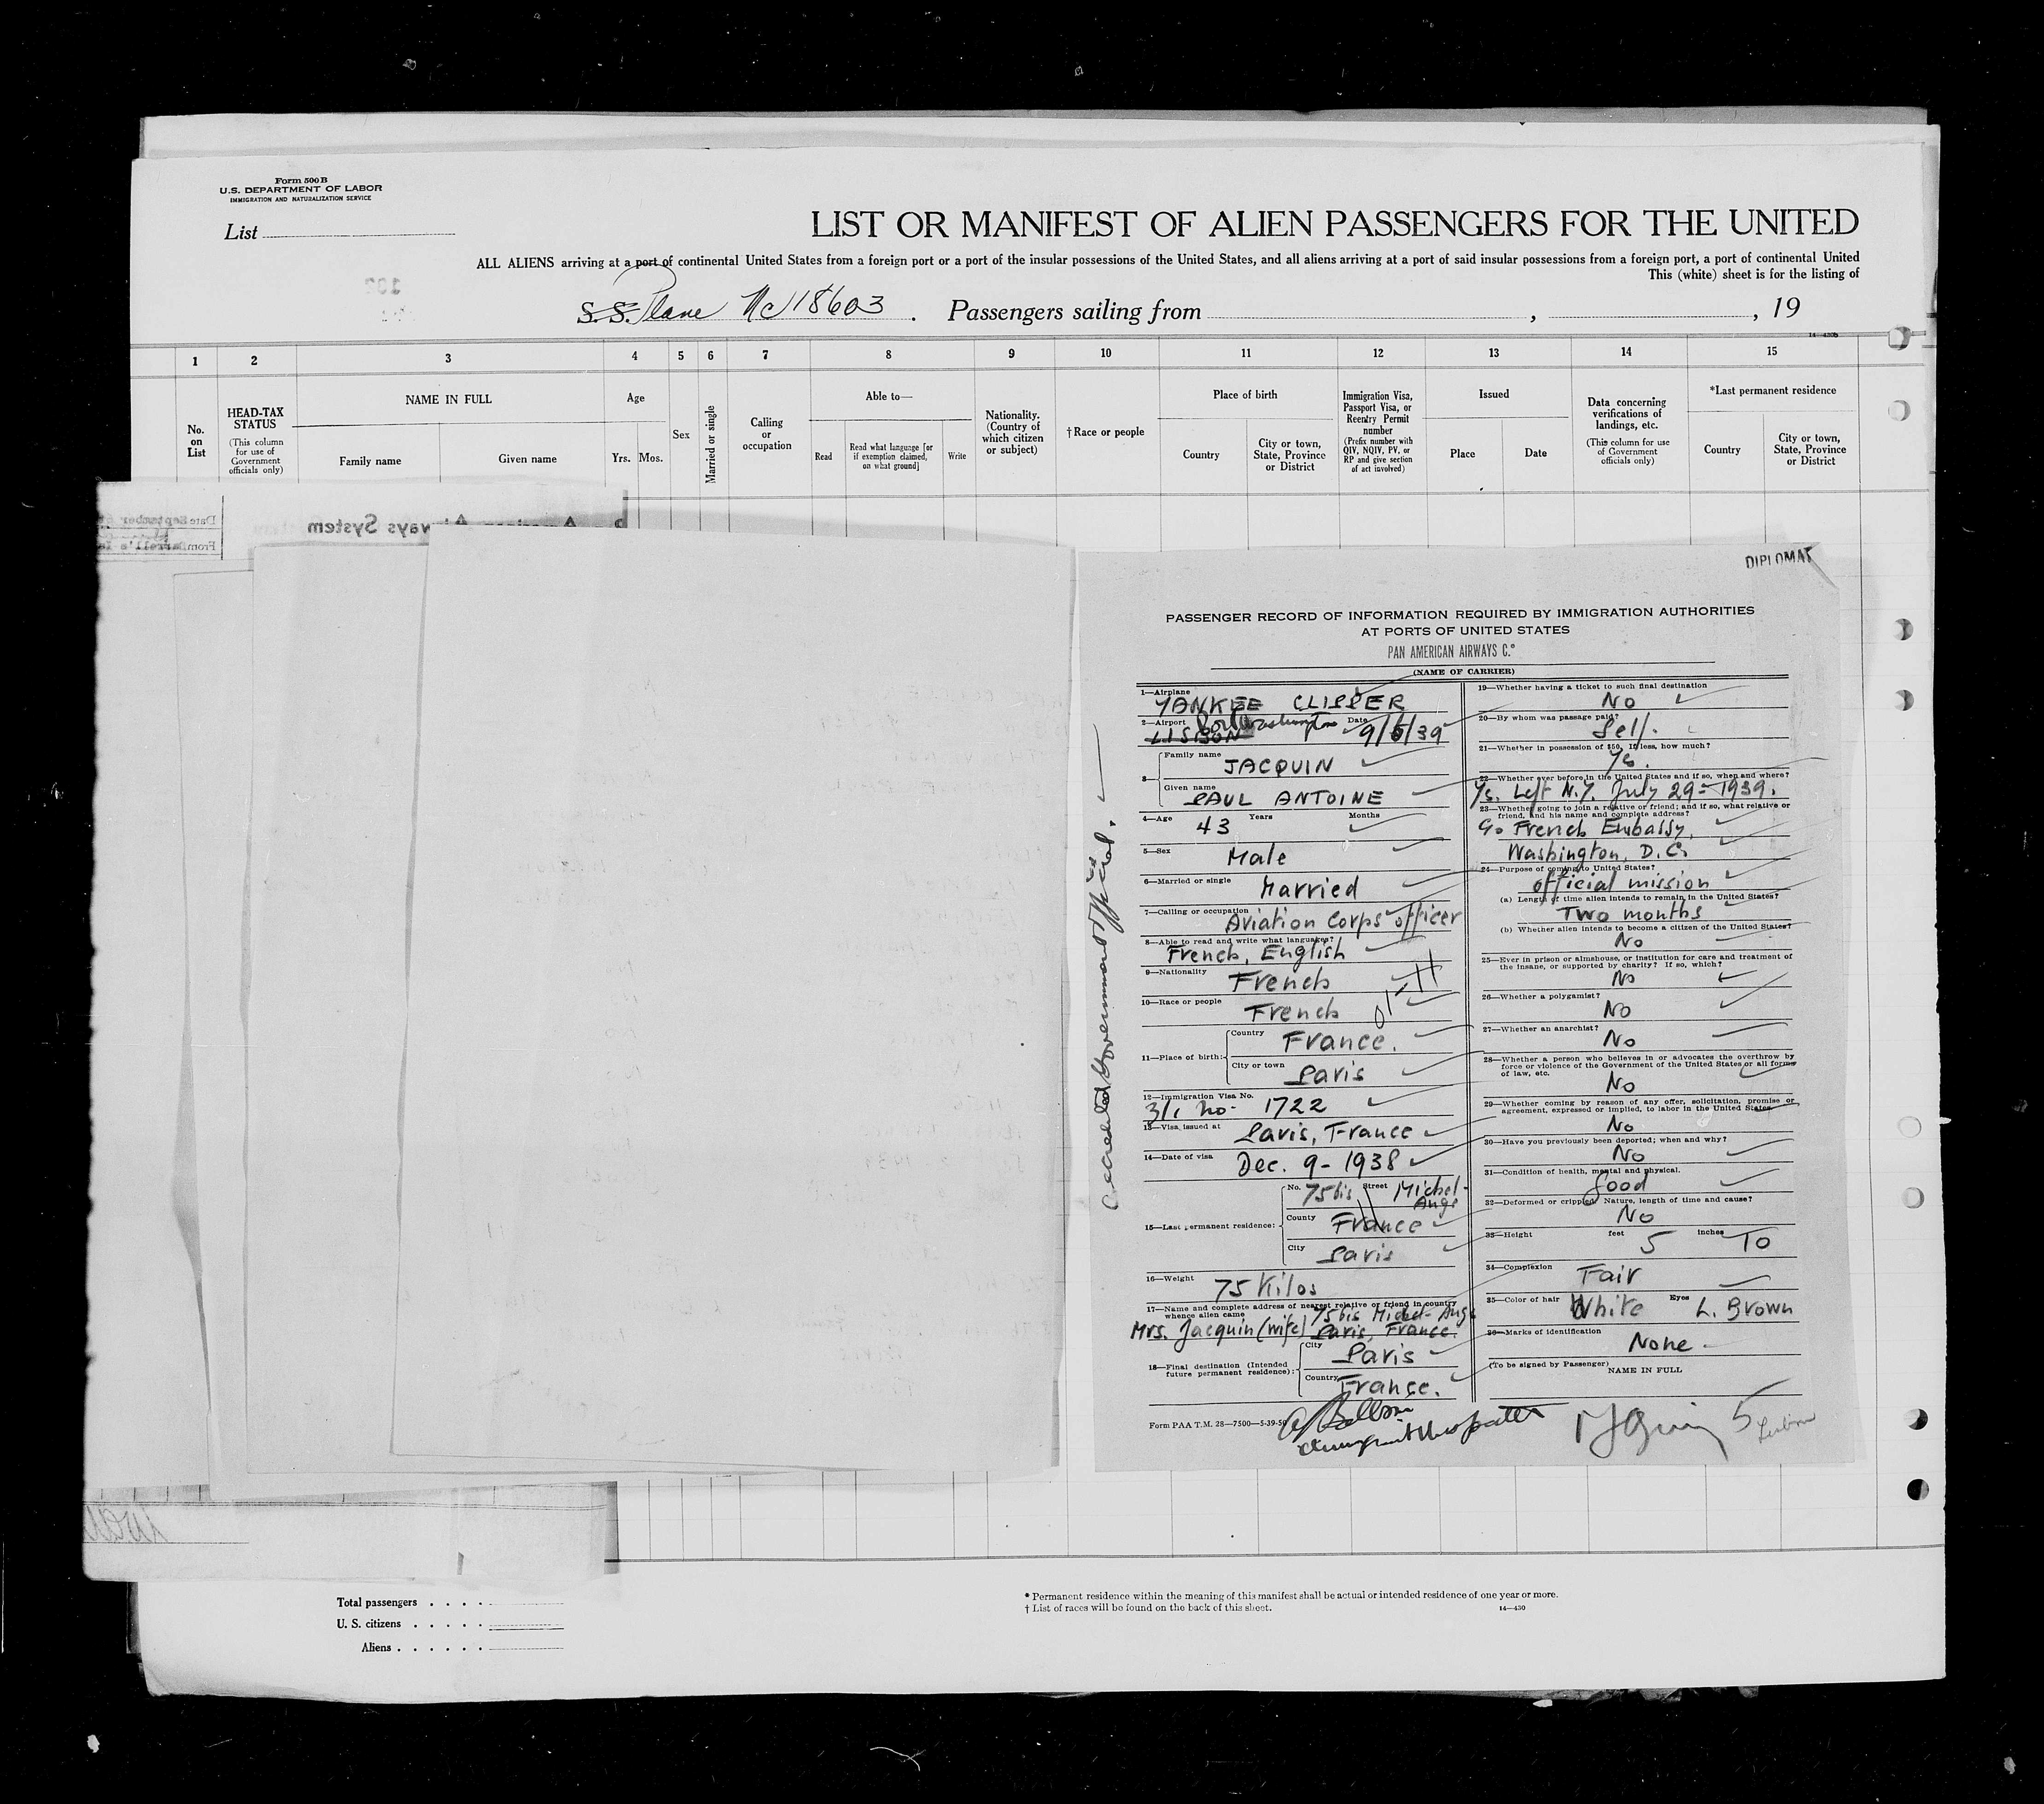 Form 500 B
U.S. DEPARTMENT OF LABOR
IMMIGRATION AND NATURALIZATION SERVICE
List
LIST OR MANIFEST OF ALIEN PASSENGERS FOR THE UNITED
ALL ALIENS arriving at a port of continental United States from a foreign port or a port of the insular possessions of the United States, and all aliens arriving at a port of said insular possessions from a foreign port, a port of continental United
This (white) sheet is for the listing of
S.S. Plane Nc 18603. Passengers sailing from , , 19
1 2 3 4 5 6 7 8 9 10 11 12 13 14 15
No. on List
HEAD-TAX STATUS
(This column for use of Government officials only)
NAME IN FULL
Family name
Given name
Age
Yrs. Mos.
Sex
Married or single
Calling or occupation
Able to—
Read
Read what language [or if exemption claimed, on what ground]
Write
Nationality. (Country of which citizen or subject)
†Race or people
Place of birth
Country
City or town, State, Province or District
Immigration Visa, Passport Visa, or Reentry Permit number
(Prefix number with QIV, NQIV, PV, or RP and give section of act involved)
Issued
Place
Date
Data concerning verifications of landings, etc.
(This column for use of Government officials only)
*Last permanent residence
Country
City or town, State, Province or District
Date September
From Darrell's
Airways System
DIPLOMAT
PASSENGER RECORD OF INFORMATION REQUIRED BY IMMIGRATION AUTHORITIES
AT PORTS OF UNITED STATES
PAN AMERICAN AIRWAYS Cº
(NAME OF CARRIER)
1—Airplane YANKEE CLIPPER
2—Airport LISBON Port Washington Date 9/5/39
3— Family name JACQUIN
Given name PAUL ANTOINE
4—Age 43 Years Months
5—Sex Male
6—Married or single Married
7—Calling or occupation Aviation Corps officer
8—Able to read and write what languages? French, English
9—Nationality French
10—Race or people French
11—Place of birth: Country France.
City or town Paris
12—Immigration Visa No. 3/1 No. 1722
13—Visa issued at Paris, France
14—Date of visa Dec. 9 - 1938
15—Last permanent residence: No. 75 bis Street Michel-Ange
County France
City Paris
16—Weight 75 Kilos
17—Name and complete address of nearest relative or friend in country whence alien came 75 bis Michel-Ange
Mrs. Jacquin (wife) Paris, France.
18—Final destination (Intended future permanent residence): City Paris
Country France.
Form PAA T.M. 28—7500—5-39-50
19—Whether having a ticket to such final destination No
20—By whom was passage paid? Self.
21—Whether in possession of $50. If less, how much? Yes.
22—Whether ever before in the United States and if so, when and where?
Ys. Left N.Y. July 29 - 1939.
23—Whether going to join a relative or friend; and if so, what relative or friend, and his name and complete address?
Go French Embassy,
Washington, D.C.
24—Purpose of coming to United States? official mission
(a) Length of time alien intends to remain in the United States? Two months
(b) Whether alien intends to become a citizen of the United States? No
25—Ever in prison or almshouse, or institution for care and treatment of the insane, or supported by charity? If so, which? No
26—Whether a polygamist? No
27—Whether an anarchist? No
28—Whether a person who believes in or advocates the overthrow by force or violence of the Government of the United States or all forms of law, etc. No
29—Whether coming by reason of any offer, solicitation, promise or agreement, expressed or implied, to labor in the United States No
30—Have you previously been deported; when and why? No
31—Condition of health, mental and physical. Good
32—Deformed or crippled. Nature, length of time and cause? No
33—Height feet 5 inches 10
34—Complexion Fair
35—Color of hair White Eyes L. Brown
36—Marks of identification None
(To be signed by Passenger) NAME IN FULL
5
Lisbon
Accredited Government Official.
Total passengers
U. S. citizens
Aliens
* Permanent residence within the meaning of this manifest shall be actual or intended residence of one year or more.
† List of races will be found on the back of this sheet.
14—430